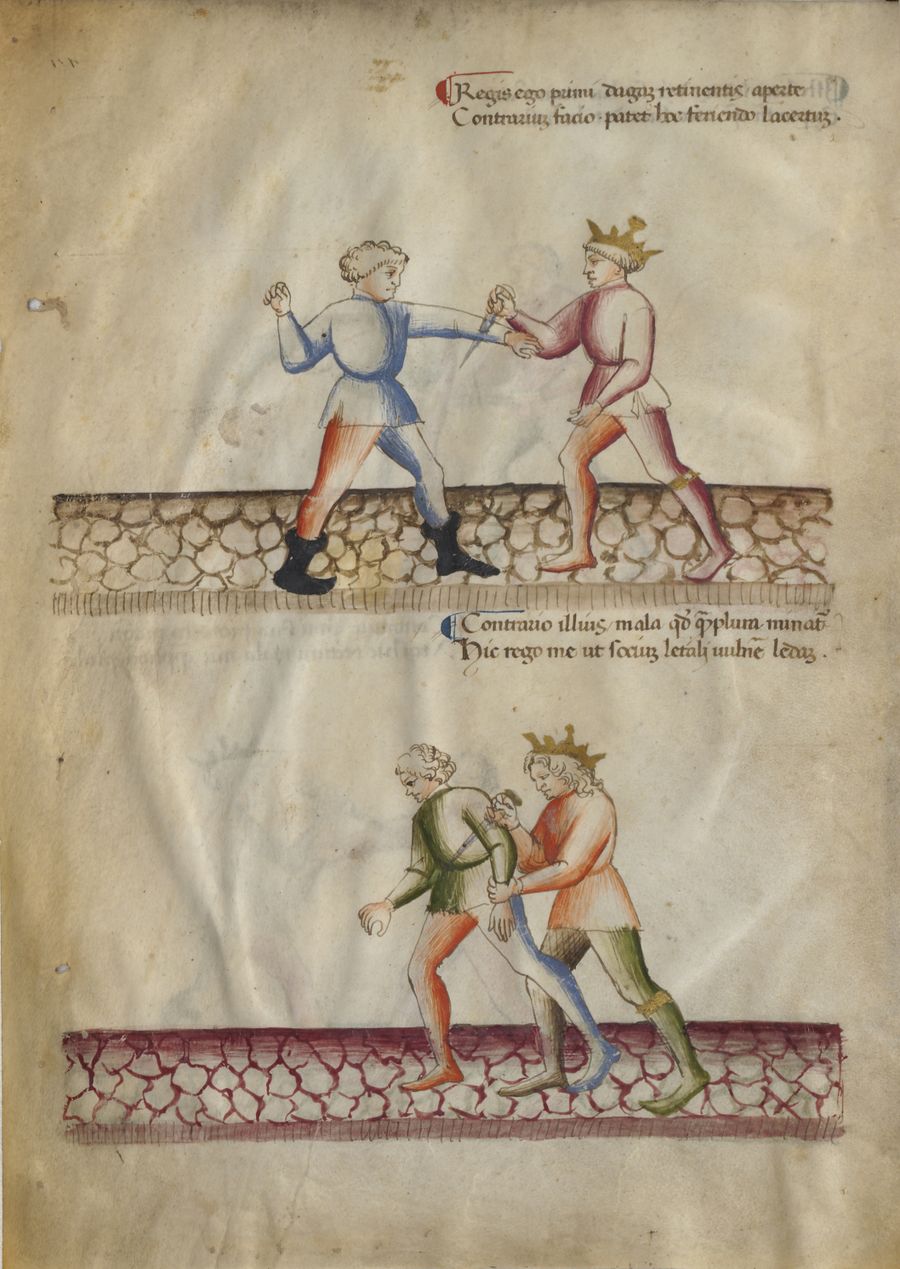 Regis ego primi dagaʒ retinentis aperte
Contrariuʒ facio · patet hoc feriendo lacertuʒ .
Contrario illius mala qđ q̃plura minat̃
Hic rego me ut sociuʒ letali uulnẽ ledaʒ .